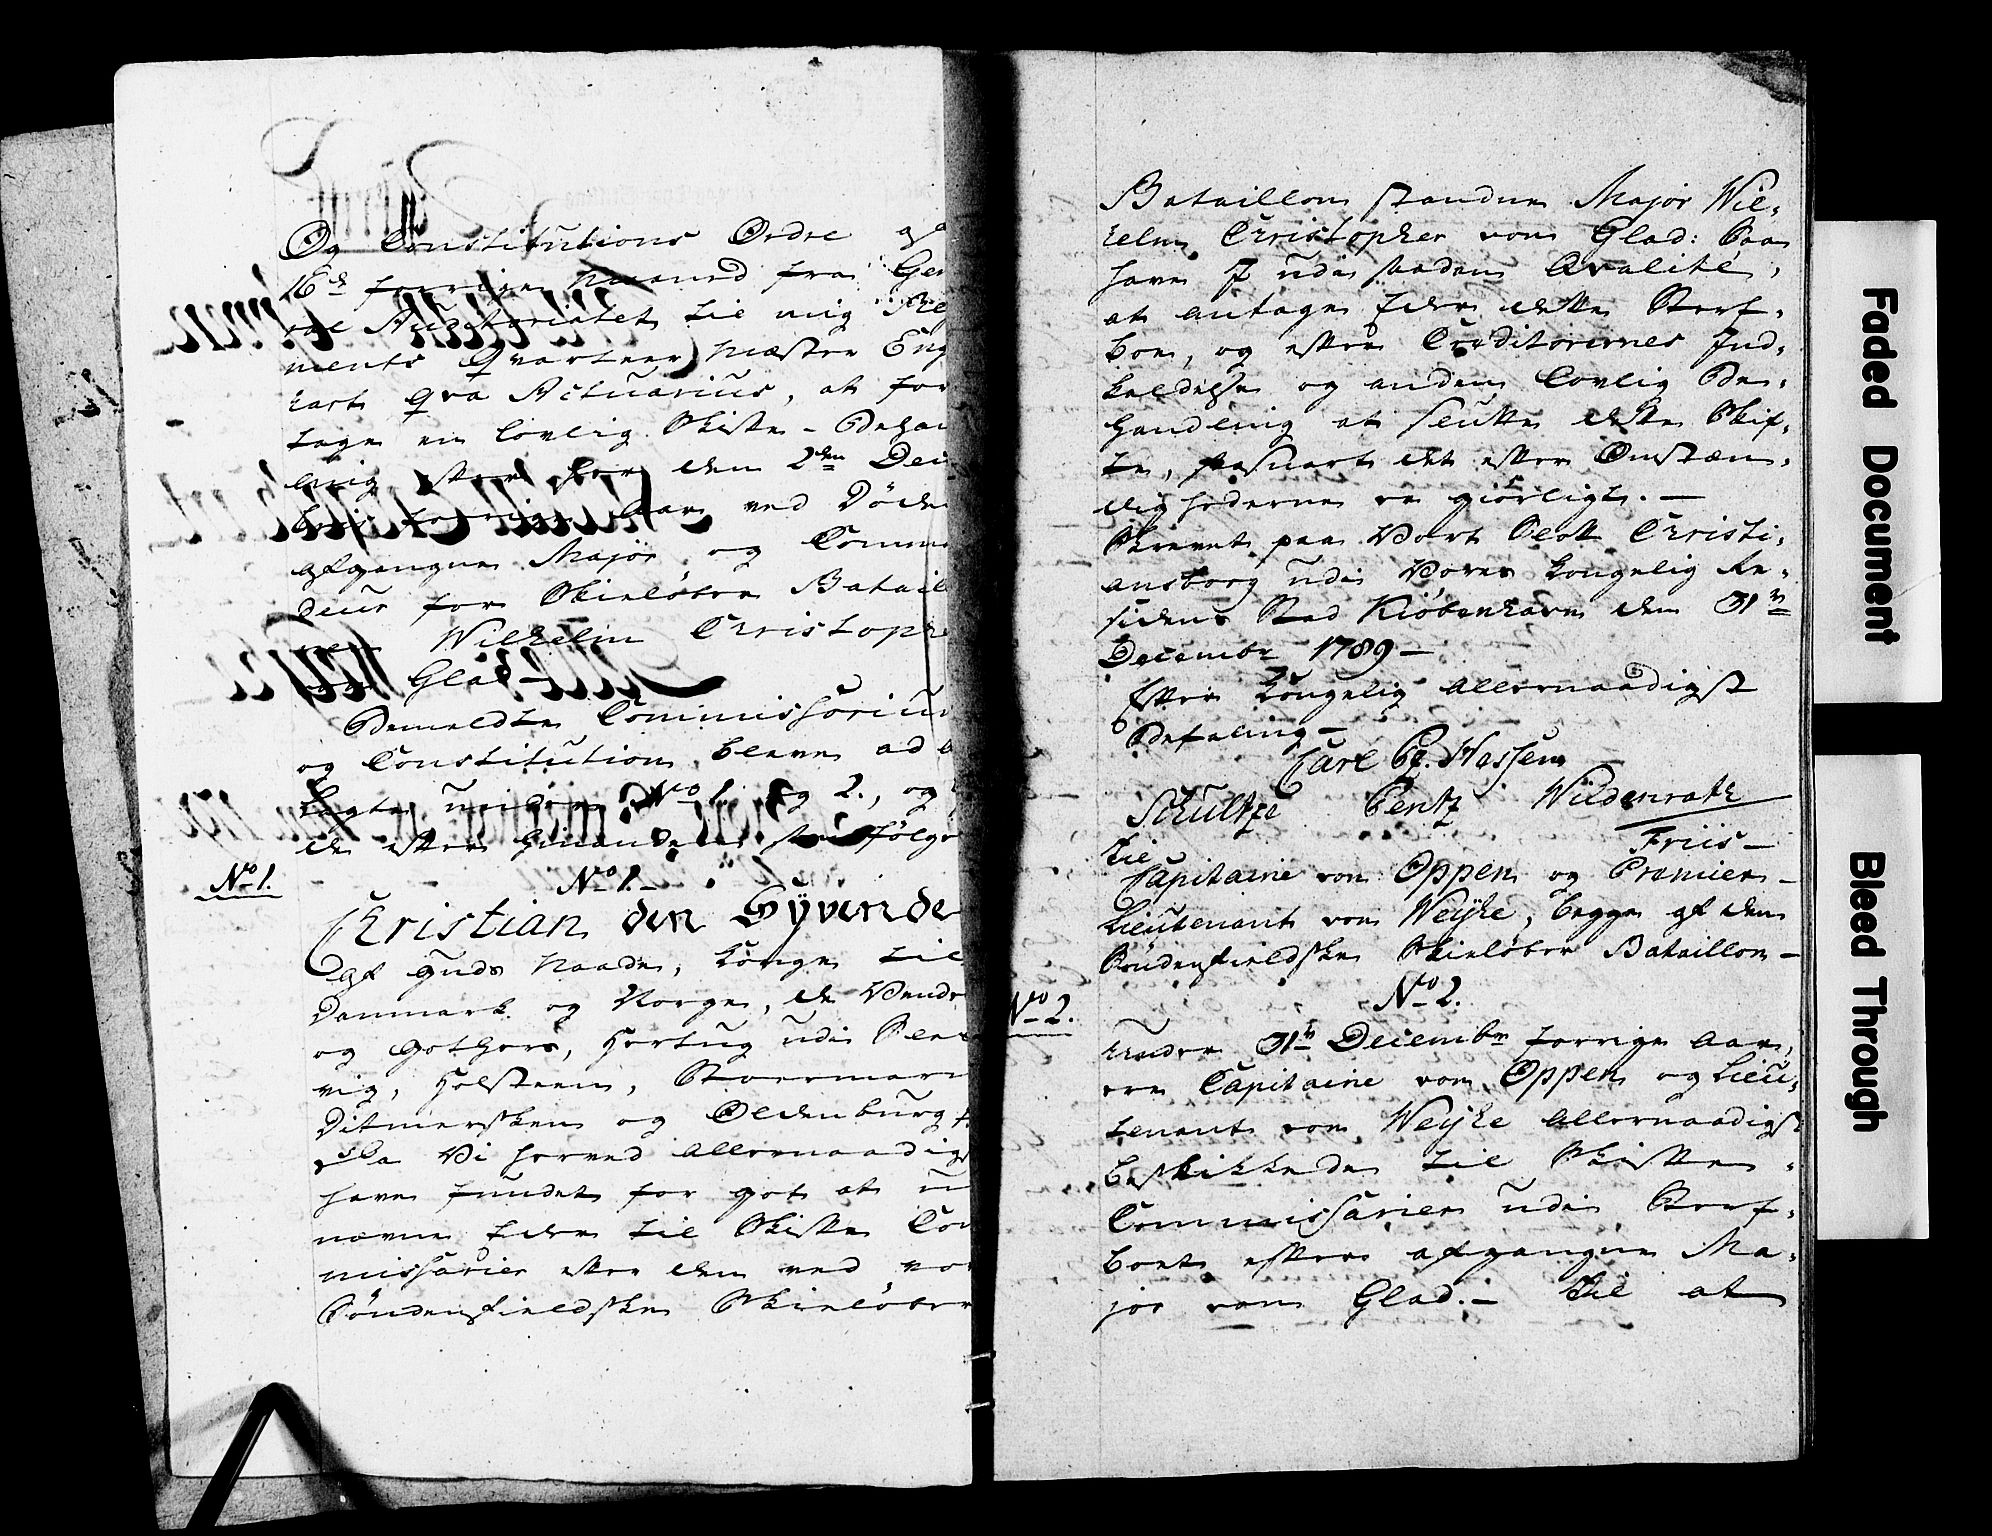 Og Constitutions Ordre af
16de forrige Maaned fra Gen
ral Auditoriatet til mig Re
ments Qvarteer Mæster Eng
hart qva Actuarius, at for
tage en lovlig Skifte-Behan
ling efter den 2den Dec
forrige Aar ved Døden
afgangne Major og Comman
deur for Skieløber Batail
Wilhelm Christoph
von Glad
Bemeldte Commissorium
og Constitution bleve ad
lagte under No 1. og 2., og
de efter hinanden følge
No 1.
No 1.
Christian den Syvende
af Guds Naade, Konge til
Danmark og Norge, de Vend
og Gothers, Hertug udi Sles
vig, Holsteen, Stoermarn
Ditmersken og Oldenburg p.
Vi herved allernaadigst
have fundet for got at ud
nævne Eder til Skifte Com
missarier efter den ved vor
Søndenfieldske Skieløber
Bataillon standne Major Wil-
helm Christopher von Glad: Saa
have I udi saadan Qvalité,
at antage Eder dette Sterf-
boe, og efter Creditorernes Ind-
kaldelse og anden lovlig Be-
handling at slutte dette Skif-
te, saasnart det efter Omstæn-
dighederne er giørligt. —
Skrevet paa Vort Slott Christi-
ansborg udi Vores Kongelig Re-
sidens Stad Kiøbenhavn den 31te
Decembr 1789 —
Efter Kongelig allernaadigst
Befaling —
Carl Pz. Hessen
Schultze Bentz Wildenrath
Friis —
Til
Capitaine von Oppen og Premier-
Lieutenant von Weyhe, begge af den
Søndenfieldske Skieløber Bataillon —
No 2.
No 2.
Under 31te Decembr forrige Aar,
ere Capitaine von Oppen og Lieu-
tenant von Weyhe allernaadigst
beskikkede til Skifte-
Commissarier udi Sterf-
boet efter afgangne Ma-
jor von Glad. — Til at
Faded Document
Bleed Through